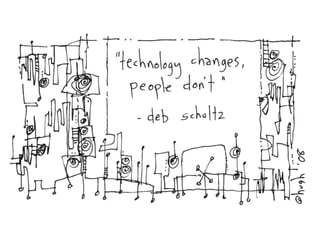 "technology changes,
people don't"
- deb schultz
@hugh '08